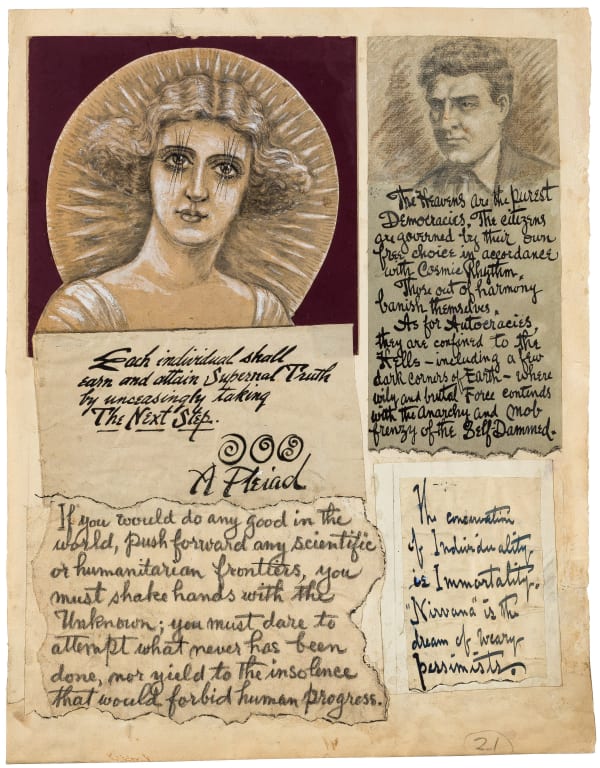 Each individual shall
earn and attain Supernal Truth
by unceasingly taking
The Next Step.
A Pleiad
If you would do any good in the
world, push forward any scientific
or humanitarian frontiers, you
must shake hands with the
Unknown; you must dare to
attempt what never has been
done, nor yield to the insolence
that would forbid human progress.
The Heavens are the purest
Democracies. The citizens
are governed by their own
free choice in accordance
with Cosmic Rhythm.
Those out of harmony
banish themselves.
As for Autocracies,
they are confined to the
Hells – including a few
dark corners of Earth – where
wily and brutal Force contends
with the Anarchy and Mob
frenzy of the Self Damned.
The conservation
of Individuality
is Immortality.
"Nirvana" is the
dream of weary
pessimists.
21